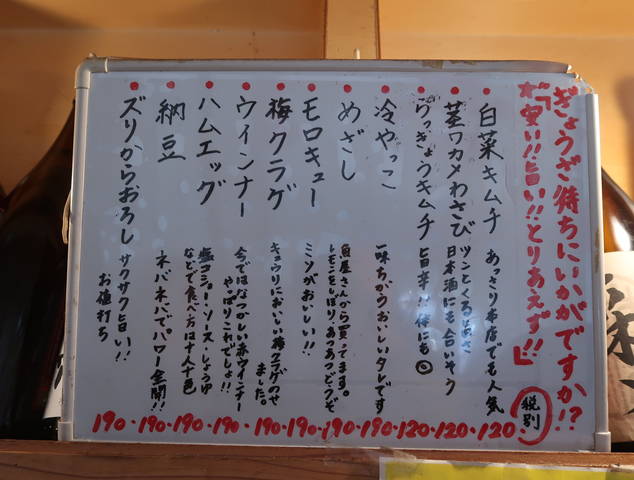 ぎょうざ待ちにいかがですか!?
★「安い!!旨い!!とりあえず!!」
税別
白菜キムチ
あっさり本店でも人気
120
茎ワカメわさび
ツンとくる
日本酒にも合いそう
120
らっきょうキムチ
旨辛!!体にも◎
120
冷やっこ
一味ちがうおいしいタレです
190
めざし
魚屋さんから買ってます。
レモンをしぼり、あつあつどうぞ
190
モロキュー
ミソがおいしい!!
190
梅クラゲ
キュウリにおいしい梅クラゲのせ
ました。
190
ウインナー
今ではなつかしい赤ウインナー
やっぱりこれでしょ!!
190
ハムエッグ
塩コショー・ソース・しょうゆ
などで食べ方は十人十色
190
納豆
ネバネバでパワー全開!!
190
ズリからおろし
サクサク旨い!!
お値打ち
190